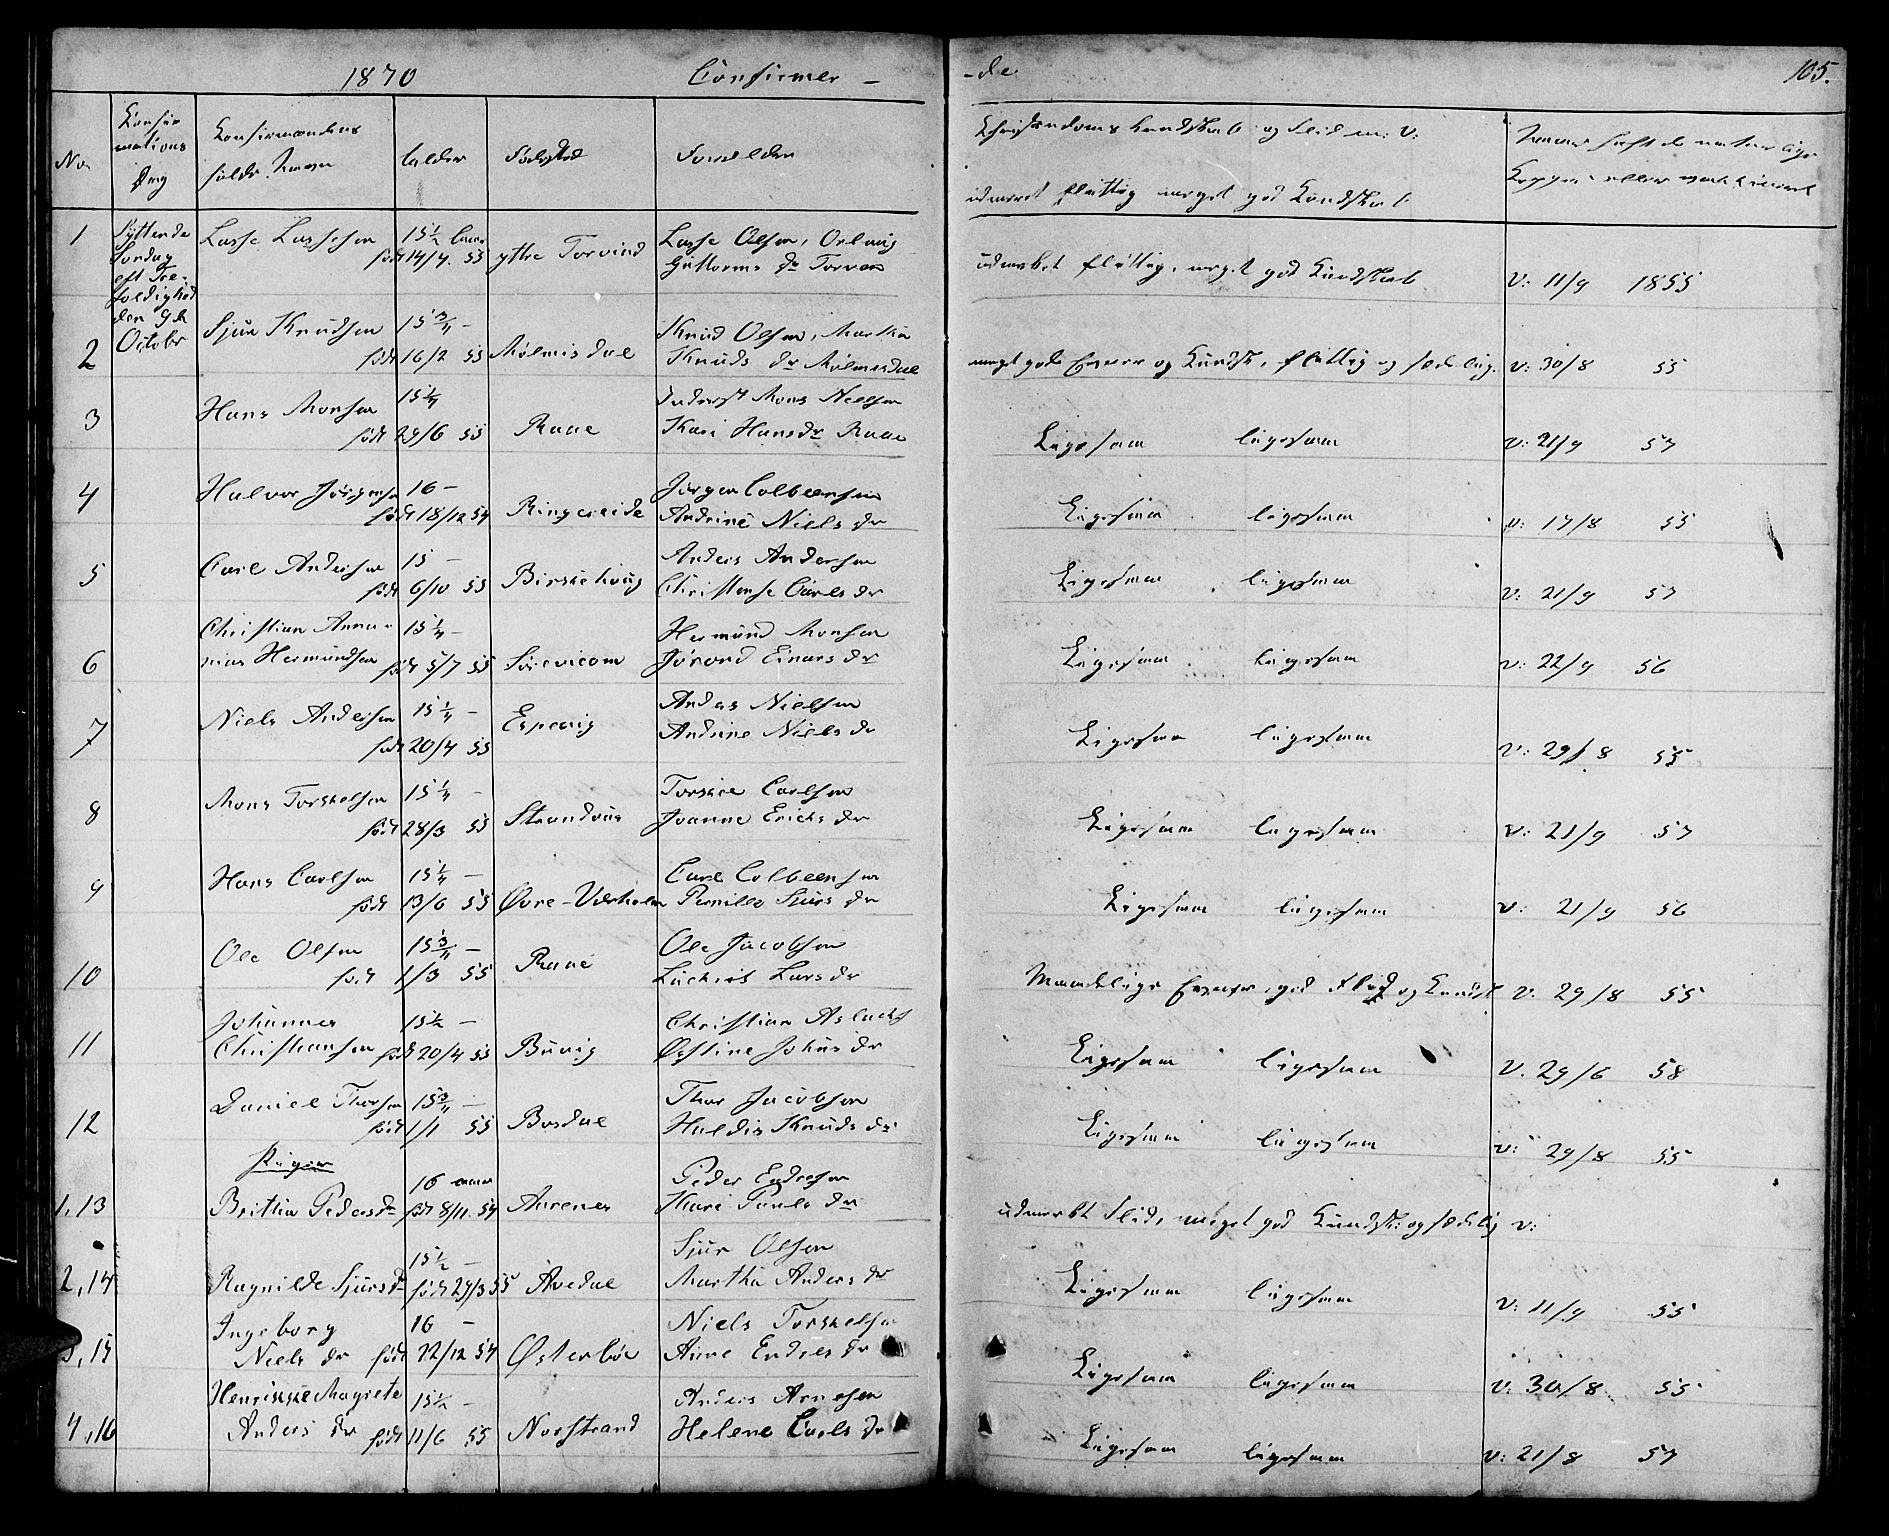 1870 Confirmer -
-de 105.
No. Konfir mations Dag Konfirmandens fulde Navn Alder Fødested Forældre
Christendoms Kundskab og Flid m: V:
1 Syttende Søndag eft Tre- foldighed den 9de Octobr
Lasse Lassesen 15½ født 14/4 55 yttre Torvind Lasse Olsen,
Guttorms dr
udmerket flittig, meget god Kundskab V: 11/9 1855
2 Sjur Knudsen 15¾ -
født 16/2 55 Mølmisdal Knud Olsen, Martha
Knuds dr Mølmesdal
meget gode Evner og Kundsk, flittig og sædelig. V: 30/8 55
3 Hans Monsen 15¼
født 29/6 55 Raae Mons Nielsen
Kari Hansdr Raae
Ligesaa ligesaa V: 21/9 57
4 Halvor Jørgensen 16 -
født 18/12 54 Ringereide Jørgen Colbeensen
Andrine Niels dr
Ligesaa ligesaa V: 17/8 55
5 Carl Andersen 15 -
født 6/10 55 Birkehoug Anders Andersen
Christense Carls dr
Ligesaa ligesaa V: 21/9 57
6 Christian Anna-
nias Hermundsen 15¼ -
født 5/7 55 Hermund Monsen
Jørond Einars dr
Ligesaa ligesaa V: 22/9 56
7 Niels Andersen 15¼ -
født 20/4 55 Espevig Anders Nielsen
Andrine Niels dr
Ligesaa ligesaa V: 29/8 55
8 Mons Torkelsen 15¼ -
født 28/3 55 Strandvig Torkel Carlsen
Joanne Erichs dr
Ligesaa ligesaa V: 21/9 57
9 Hans Carlsen 15¼ -
født 13/6 55 Øvre-Varholm Carl Colbeensen
Pernille Sjurs dr
Ligesaa ligesaa V: 21/9 56
10 Ole Olsen 15¾ -
født 1/3 55 Raae Ole Jacobsen
Lars dr
Maadelige Evner, god Flid og Kundsk V. 29/8 55
11 Johannes
Christiansen 15½ -
født 20/4 55 Buvig Christian Aslachs
Østine Johns dr
Ligesaa ligesaa V. 29/6 58
12 Daniel Thorsen 15¾ -
født 1/1 55 Bordal Thor Jacobsen
Haldis Knuds dr
Ligesaa ligesaa V: 29/8 55
Piger
1,13 Britha Pedersdr 16
født 8/11 54 Aarenes Peder Endresen
Kari Pauls dr
udmerket Flid, meget god Kundsk: og sædelig V:
2,14 Ragnilde Sjursdr 15½ -
født 29/3 55 Avedal Sjur Olsen
Martha Anders dr
Ligesaa ligesaa V: 11/9 55
3,15 Ingeborg
Niels dr 16 -
født 22/12 54 Østerbøe Niels Torkelsen
Anne Endres dr
Ligesaa ligesaa V: 30/8 55
4,16 Henrikke Magrete
Anders dr 15½ -
født 11/6 55 Norstrand Anders Arnesen
Helene Carls dr
Ligesaa ligesaa V: 21/8 57